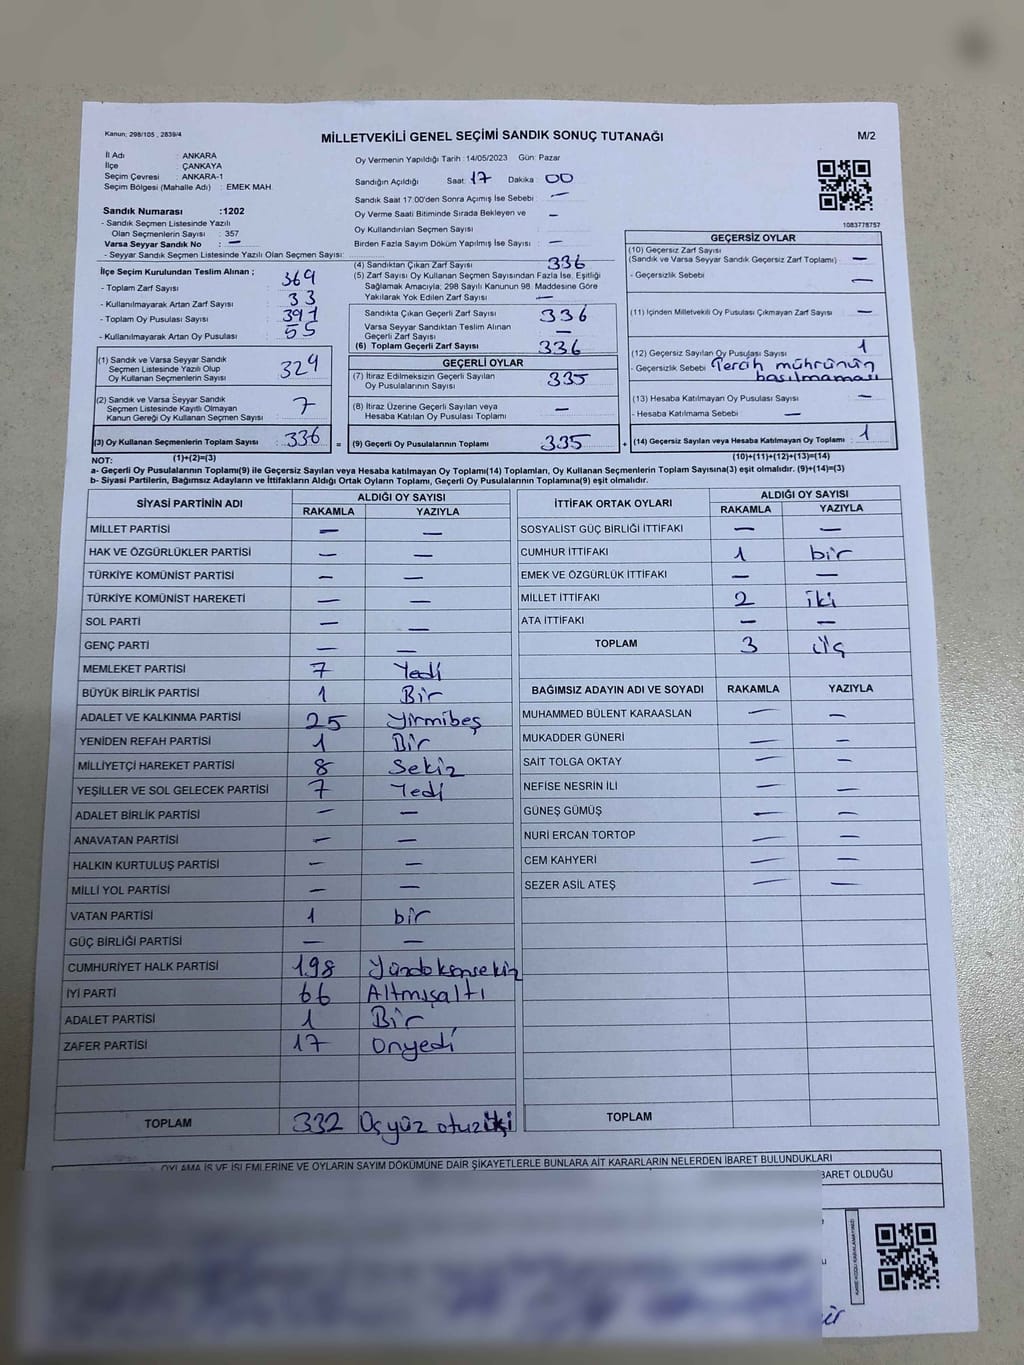 Kanun; 298/105 , 2839/4
MİLLETVEKİLİ GENEL SEÇİMİ SANDIK SONUÇ TUTANAĞI
M/2
İl Adı : ANKARA
İlçe : ÇANKAYA
Seçim Çevresi : ANKARA-1
Seçim Bölgesi (Mahalle Adı) : EMEK MAH.
Sandık Numarası :1202
- Sandık Seçmen Listesinde Yazılı
Olan Seçmenlerin Sayısı : 357
Varsa Seyyar Sandık No : —
- Seyyar Sandık Seçmen Listesinde Yazılı Olan Seçmen Sayısı:
Oy Vermenin Yapıldığı Tarih :14/05/2023 Gün: Pazar
Sandığın Açıldığı Saat: 17 Dakika: 00
Sandık Saat 17:00'den Sonra Açımış İse Sebebi : —
Oy Verme Saati Bitiminde Sırada Bekleyen ve
Oy Kullandırılan Seçmen Sayısı : —
Birden Fazla Sayım Döküm Yapılmış İse Sayısı : —
1083778757
İlçe Seçim Kurulundan Teslim Alınan ;
- Toplam Zarf Sayısı : 369
- Kullanılmayarak Artan Zarf Sayısı : 33
- Toplam Oy Pusulası Sayısı : 391
- Kullanılmayarak Artan Oy Pusulası : 55
(1) Sandık ve Varsa Seyyar Sandık
Seçmen Listesinde Yazılı Olup
Oy Kullanan Seçmenlerin Sayısı : 329
(2) Sandık ve Varsa Seyyar Sandık
Seçmen Listesinde Kayıtlı Olmayan
Kanun Gereği Oy Kullanan Seçmen Sayısı : 7
(3) Oy Kullanan Seçmenlerin Toplam Sayısı : 336
(4) Sandıktan Çıkan Zarf Sayısı : 336
(5) Zarf Sayısı Oy Kullanan Seçmen Sayısından Fazla İse, Eşitliği
Sağlamak Amacıyla; 298 Sayılı Kanunun 98. Maddesine Göre
Yakılarak Yok Edilen Zarf Sayısı : —
Sandıkta Çıkan Geçerli Zarf Sayısı : 336
Varsa Seyyar Sandıktan Teslim Alınan
Geçerli Zarf Sayısı : —
(6) Toplam Geçerli Zarf Sayısı : 336
GEÇERLİ OYLAR
(7) İtiraz Edilmeksizin Geçerli Sayılan
Oy Pusulalarının Sayısı : 335
(8) İtiraz Üzerine Geçerli Sayılan veya
Hesaba Katılan Oy Pusulası Toplamı : —
= (9) Geçerli Oy Pusulalarının Toplamı : 335
GEÇERSİZ OYLAR
(10) Geçersiz Zarf Sayısı
(Sandık ve Varsa Seyyar Sandık Geçersiz Zarf Toplamı) : —
- Geçersizlik Sebebi : —
(11) İçinden Milletvekili Oy Pusulası Çıkmayan Zarf Sayısı : —
(12) Geçersiz Sayılan Oy Pusulası Sayısı : 1
- Geçersizlik Sebebi : Tercih mührünün
basılmaması
(13) Hesaba Katılmayan Oy Pusulası Sayısı : —
- Hesaba Katılmama Sebebi : —
+ (14) Geçersiz Sayılan veya Hesaba Katılmayan Oy Toplamı : 1
NOT: (1)+(2)=(3)
(10)+(11)+(12)+(13)=(14)
a- Geçerli Oy Pusulalarının Toplamı(9) ile Geçersiz Sayılan veya Hesaba katılmayan Oy Toplamı(14) Toplamları, Oy Kullanan Seçmenlerin Toplam Sayısına(3) eşit olmalıdır. (9)+(14)=(3)
b- Siyasi Partilerin, Bağımsız Adayların ve İttifakların Aldığı Ortak Oyların Toplamı, Geçerli Oy Pusulalarının Toplamına(9) eşit olmalıdır.
SİYASİ PARTİNİN ADI ALDIĞI OY SAYISI
RAKAMLA YAZIYLA
MİLLET PARTİSİ — —
HAK VE ÖZGÜRLÜKLER PARTİSİ — —
TÜRKİYE KOMÜNİST PARTİSİ — —
TÜRKİYE KOMÜNİST HAREKETİ — —
SOL PARTİ — —
GENÇ PARTİ — —
MEMLEKET PARTİSİ 7 Yedi
BÜYÜK BİRLİK PARTİSİ 1 Bir
ADALET VE KALKINMA PARTİSİ 25 Yirmibeş
YENİDEN REFAH PARTİSİ 1 Bir
MİLLİYETÇİ HAREKET PARTİSİ 8 Sekiz
YEŞİLLER VE SOL GELECEK PARTİSİ 7 Yedi
ADALET BİRLİK PARTİSİ — —
ANAVATAN PARTİSİ — —
HALKIN KURTULUŞ PARTİSİ — —
MİLLİ YOL PARTİSİ — —
VATAN PARTİSİ 1 bir
GÜÇ BİRLİĞİ PARTİSİ — —
CUMHURİYET HALK PARTİSİ 198 Yüzdoksensekiz
İYİ PARTİ 66 Altmışaltı
ADALET PARTİSİ 1 Bir
ZAFER PARTİSİ 17 Onyedi
TOPLAM 332 Üçyüz otuziki
İTTİFAK ORTAK OYLARI ALDIĞI OY SAYISI
RAKAMLA YAZIYLA
SOSYALİST GÜÇ BİRLİĞİ İTTİFAKI — —
CUMHUR İTTİFAKI 1 bir
EMEK VE ÖZGÜRLÜK İTTİFAKI — —
MİLLET İTTİFAKI 2 iki
ATA İTTİFAKI — —
TOPLAM 3 üç
BAĞIMSIZ ADAYIN ADI VE SOYADI RAKAMLA YAZIYLA
MUHAMMED BÜLENT KARAASLAN — —
MUKADDER GÜNERİ — —
SAİT TOLGA OKTAY — —
NEFİSE NESRİN İLİ — —
GÜNEŞ GÜMÜŞ — —
NURİ ERCAN TORTOP — —
CEM KAHYERİ — —
SEZER ASİL ATEŞ — —
TOPLAM
OYLAMA İŞ VE İŞLEMLERİNE VE OYLARIN SAYIM DÖKÜMÜNE DAİR ŞİKAYETLERLE BUNLARA AİT KARARLARIN NELERDEN İBARET BULUNDUKLARI
BARET OLDUĞU